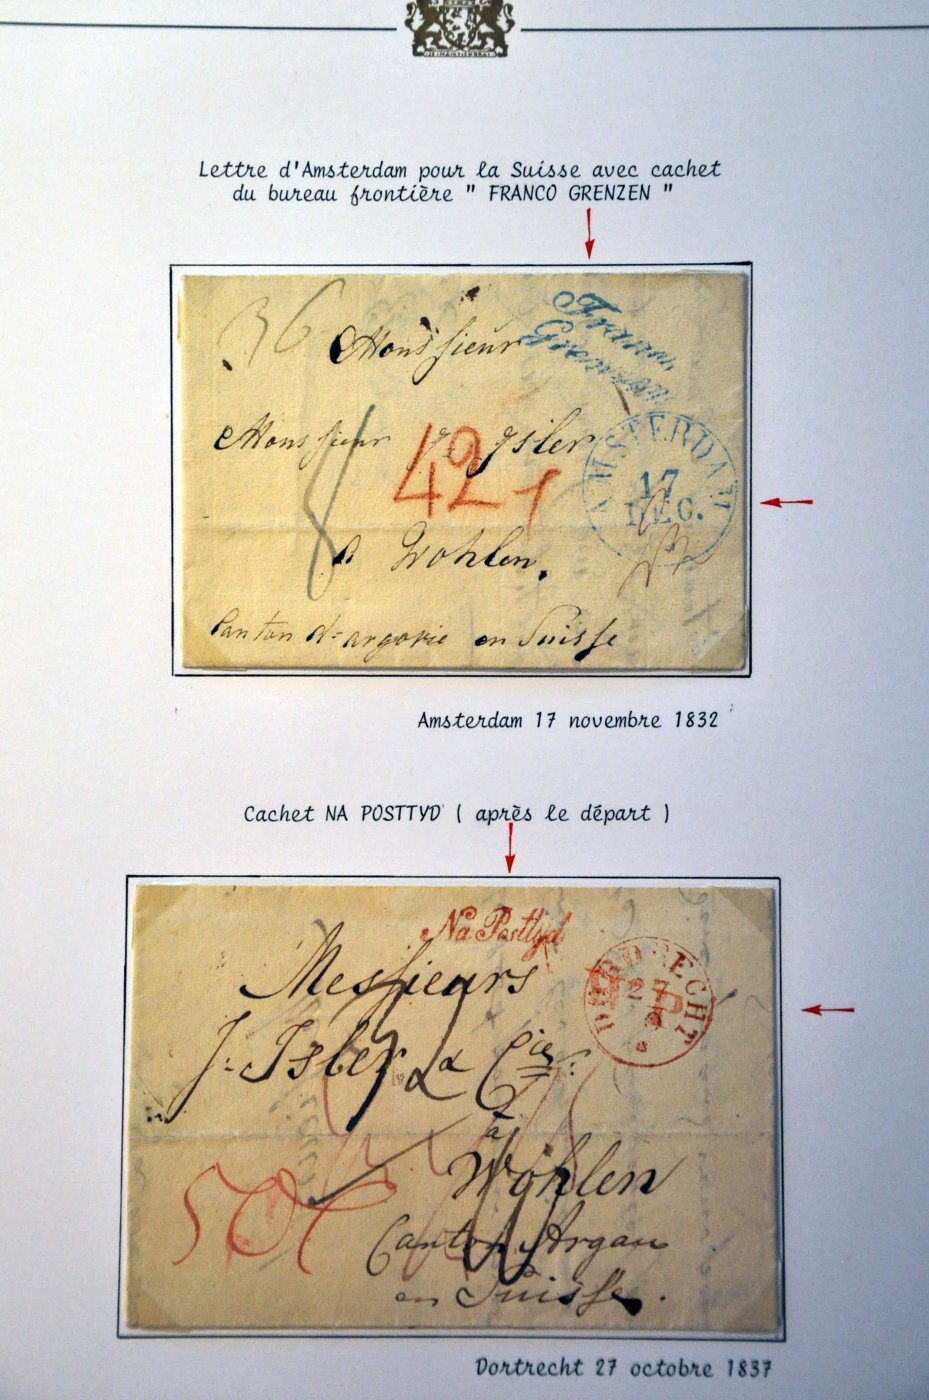 Lettre d'Amsterdam pour la Suisse avec cachet
du bureau frontière " FRANCO GRENZEN "
36
Franco
Grenzen
Monsieur
AMSTERDAM
17
DEC.
Monsieur J. Isler
42
a Wohlen.
Canton d'argovie en Suisse
Amsterdam 17 novembre 1832
Cachet NA POSTTYD ( après le départ )
Na Posttyd
DORDRECHT
27
Messieurs
J. Isler & Cie
a
Wohlen
50
Canton Argau
en Suisse.
Dortrecht 27 octobre 1837